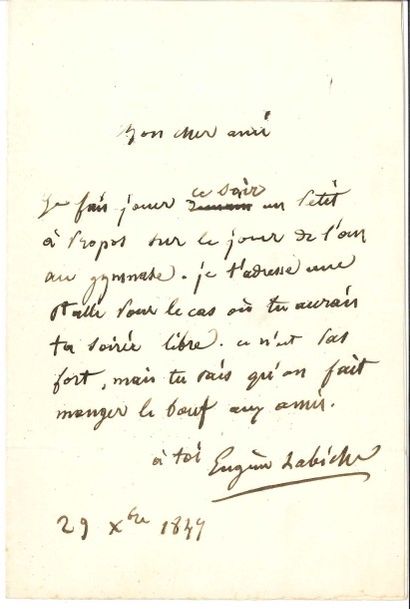 Mon cher ami
Je fais jouer ce soir un petit
à propos sur le jour de l'an
au gymnase. je t'adresse une
stalle pour le cas où tu aurais
ta soirée libre. ce n'est pas
fort, mais tu sais qu'on fait
manger le bœuf aux amis.
à toi Eugène Labiche
29 Xbre 1849